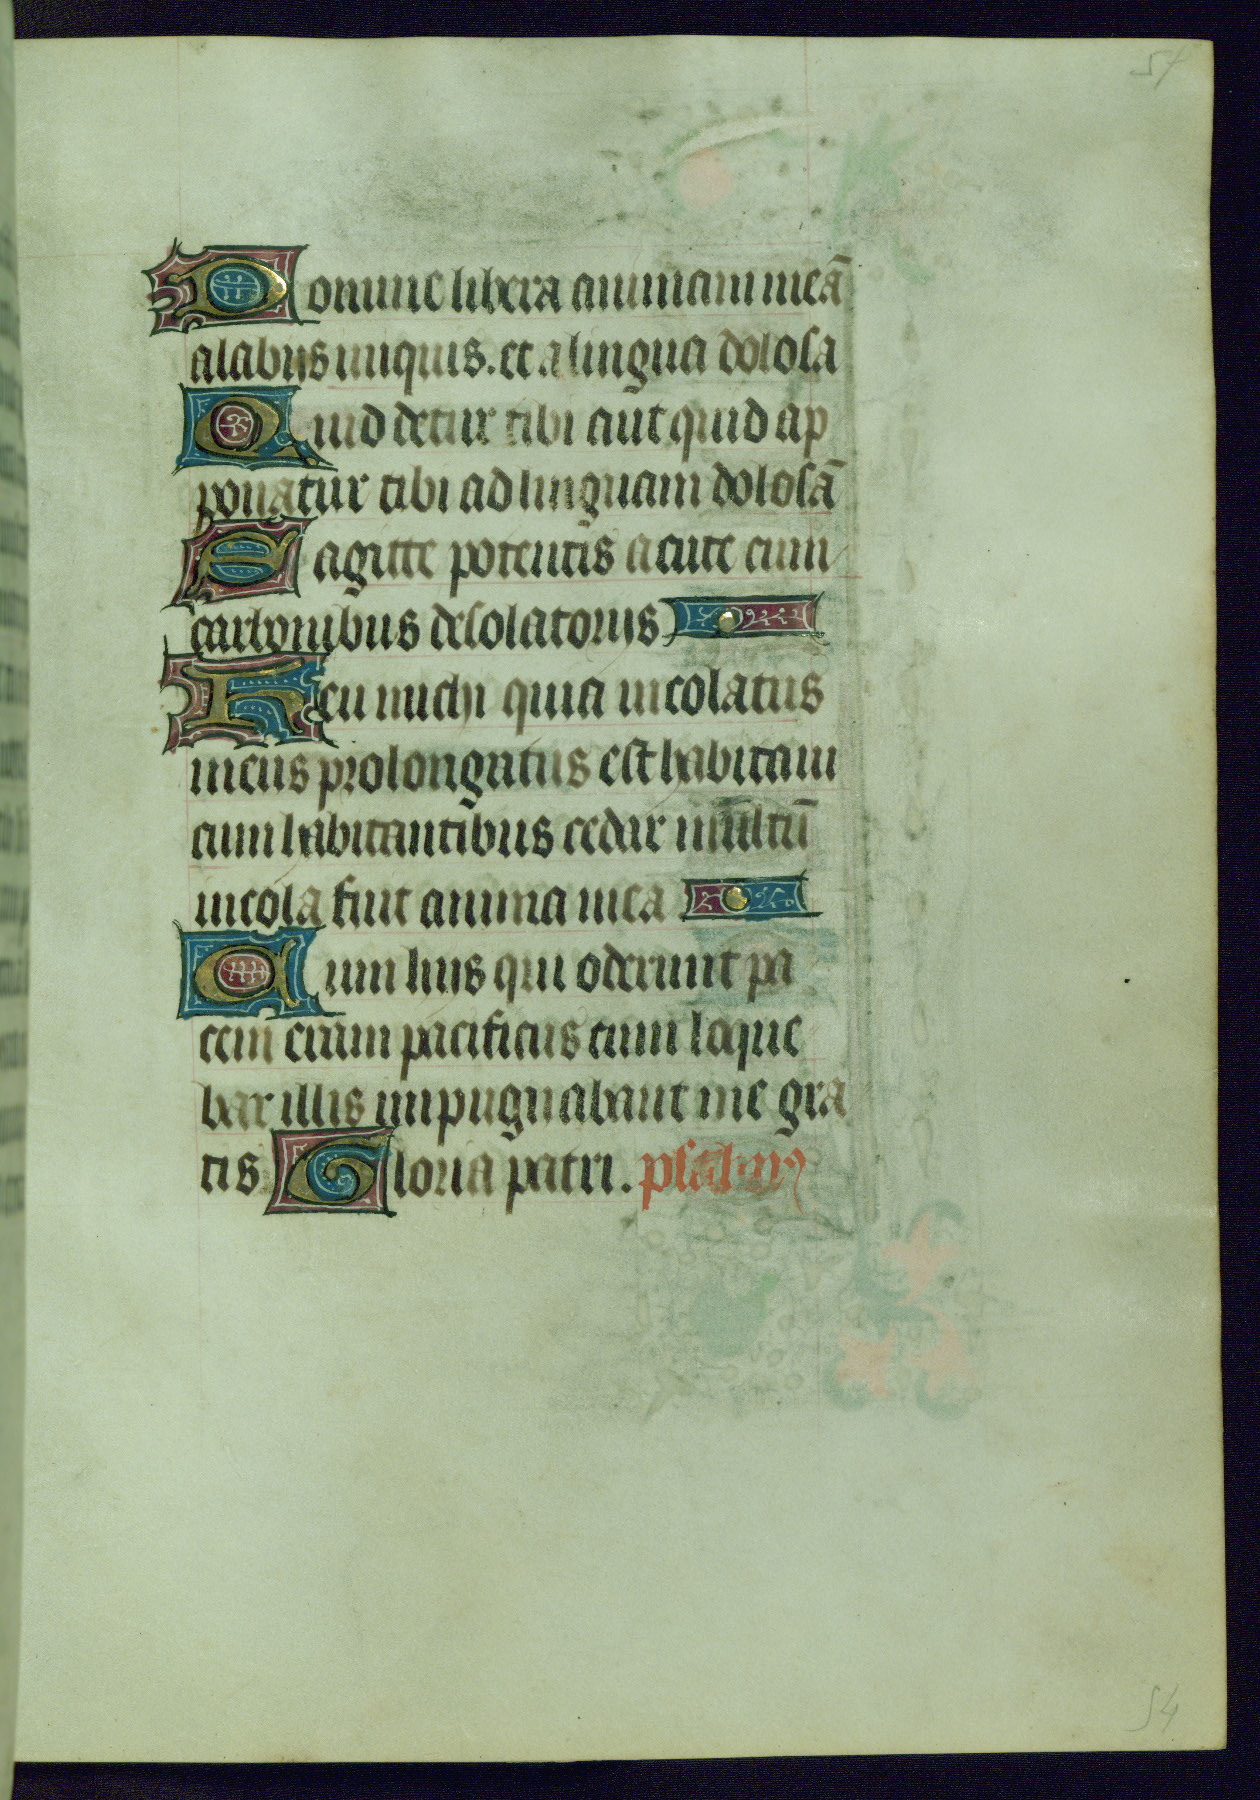 57
Domine libera animam meā
alabiis iniquis. et a lingua dolosa
Quid detur tibi aut quid ap
ponatur tibi ad linguam dolosā
Sagitte potentis acute cum
carbonibus desolatoriis
Heu michi quia incolatus
meus prolongatus est habitaui
cum habitantibus cedar multū
incola fuit anima mea
Cum hiis qui oderunt pa
cem eram pacificus cum loque
bar illis inpugnabant me gra
tis Gloria patri. psalmꝰ
54